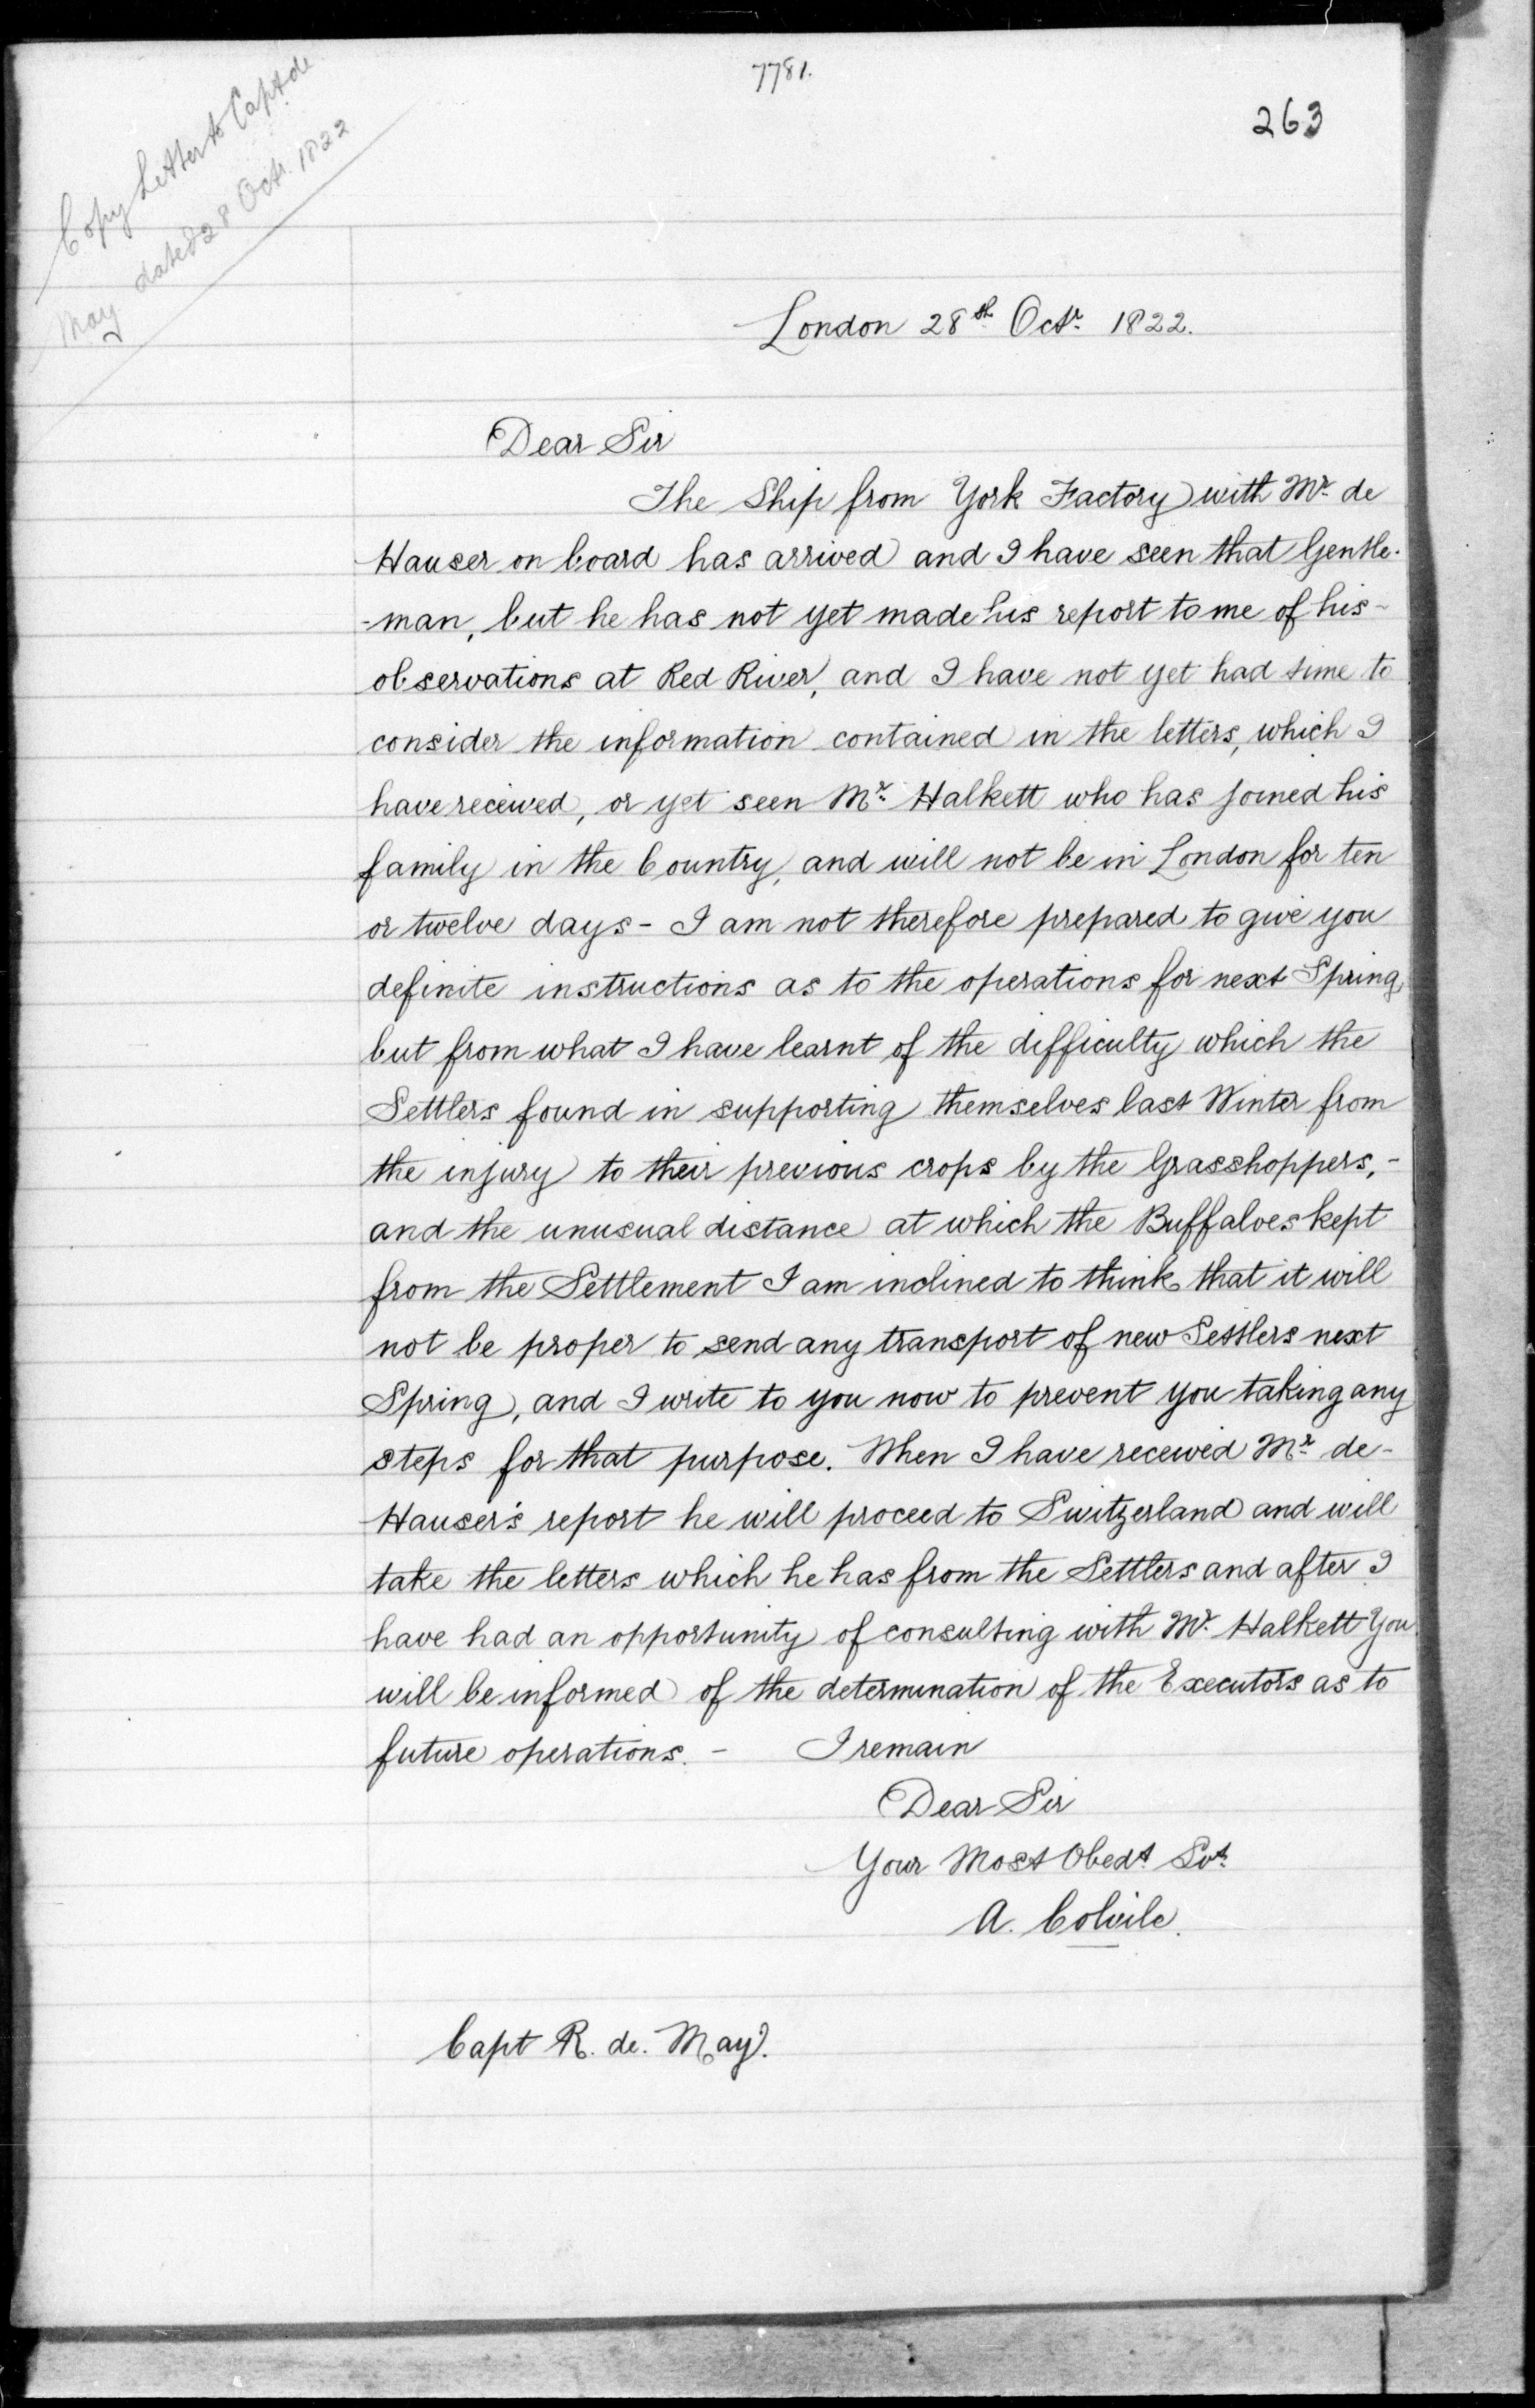 7781.
263
Copy Letter to Capt de
May dated 28 Octr. 1822
London 28th Octr. 1822.
Dear Sir
The Ship from York Factory with Mr. de
Hauser on board has arrived and I have seen that Gentle-
-man, but he has not yet made his report to me of his -
observations at Red River, and I have not yet had time to
consider the information contained in the letters, which I
have received, or yet seen Mr. Halkett who has joined his
family in the Country, and will not be in London for ten
or twelve days - I am not therefore prepared to give you
definite instructions as to the operations for next Spring,
but from what I have learnt of the difficulty which the
Settlers found in supporting themselves last Winter from
the injury to their previous crops by the Grasshoppers, -
and the unusual distance at which the Buffaloes kept
from the Settlement I am inclined to think that it will
not be proper to send any transport of new Settlers next
Spring, and I write to you now to prevent you taking any
steps for that purpose. When I have received Mr. de -
Hauser's report he will proceed to Switzerland and will
take the letters which he has from the Settlers and after I
have had an opportunity of consulting with Mr. Halkett You
will be informed of the determination of the Executors as to
future operations. - I remain
Dear Sir
Your Most Obedt. Svt.
A. Colvile.
Capt R. de. May.